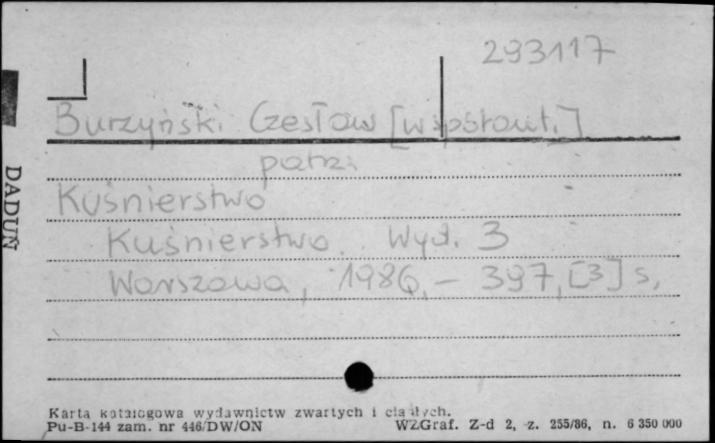 293117
Burzyński Czesław [współaut.]
patrz:
Kuśnierstwo
Kuśnierstwo. Wyd. 3
Warszawa, 1986, – 397, [3] s.
DADUŃ
Karta katalogowa wydawnictw zwartych i ciągłych.
Pu-B-144 zam. nr 446/DW/ON WZGraf. Z-d 2, z. 255/86, n. 6 350 000